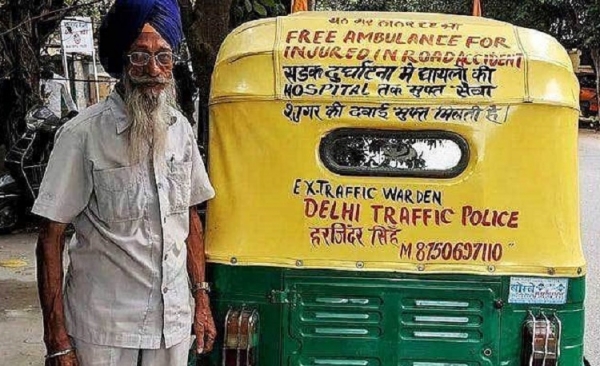 FREE AMBULANCE FOR
INJURED IN ROAD ACCIDENT
सड़क दुर्घटना में घायलों की
HOSPITAL तक मुफ्त सेवा
शुगर की दवाई मुफ्त मिलती है।
EX.TRAFFIC WARDEN
DELHI TRAFFIC POLICE
हरजिंदर सिंह
M 8750697110